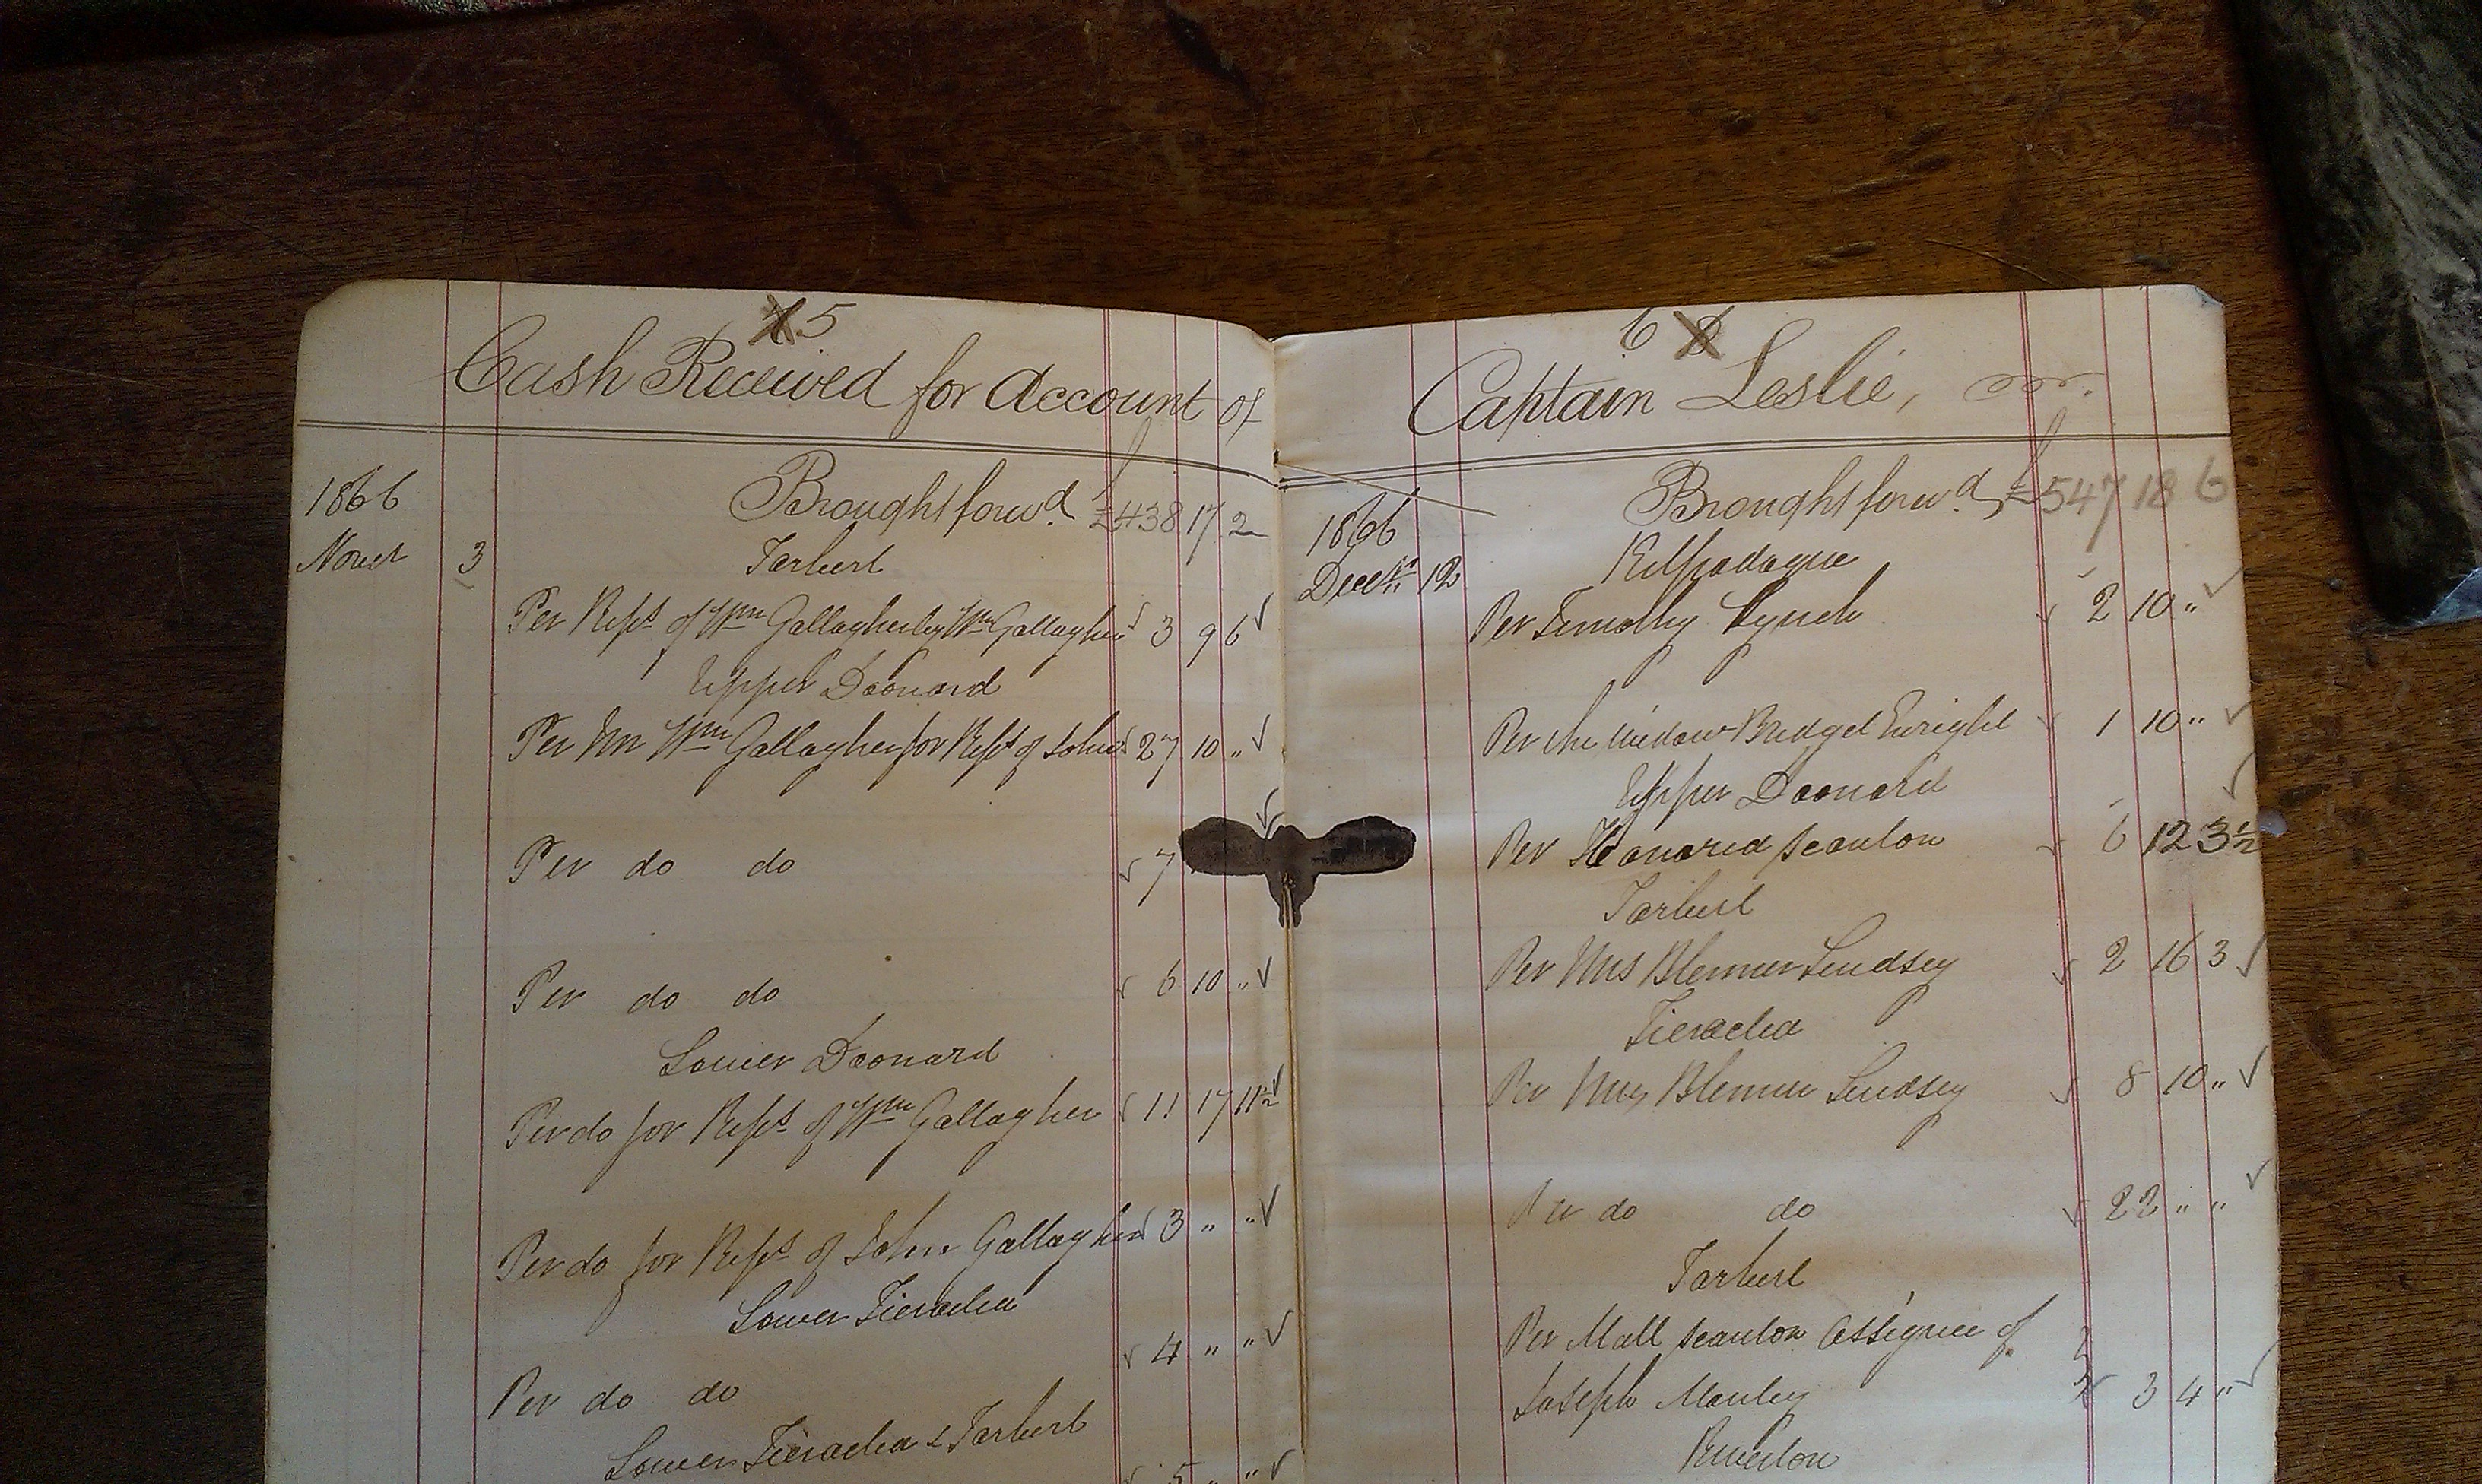 5
Cash Received for Account of
1866
Brought forwd. £438 17 2
Novr 3
Tarbert
Per Reps of Wm Gallagher by Wm Gallagher 3 9 6
Upper Doonard
Per Mr Wm Gallagher for Reps of John 27 10 "
Per do do 7
Per do do 6 10 "
Lower Doonard
Per do for Reps of Wm Gallagher 11 17 11½
Per do for Reps of John Gallagher 3 " "
Lower Tieraclea
4 " "
Per do do
Lower Tieraclea & Tarbert
5 " "
6
Captain Leslie,
Brought forwd. £547 18 6
1866
Decr 12
Kilpadogue
Per Timothy Lynch 2 10 "
Per the Widow Bridget Enright 1 10 "
Upper Doonard
Per Honored Scanlon 6 12 3½
Tarbert
Per Mrs Blenner Lindsey 2 16 3
Tieraclea
Per Mrs Blenner Lindsey 8 10 "
Per do do 22 " "
Tarbert
Per Matt Scanlon Assignee of
Joseph Manley 3 4 "